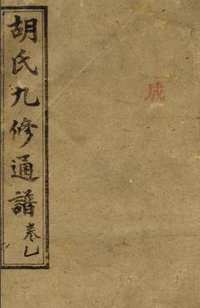 胡氏九修通譜
卷乚
成